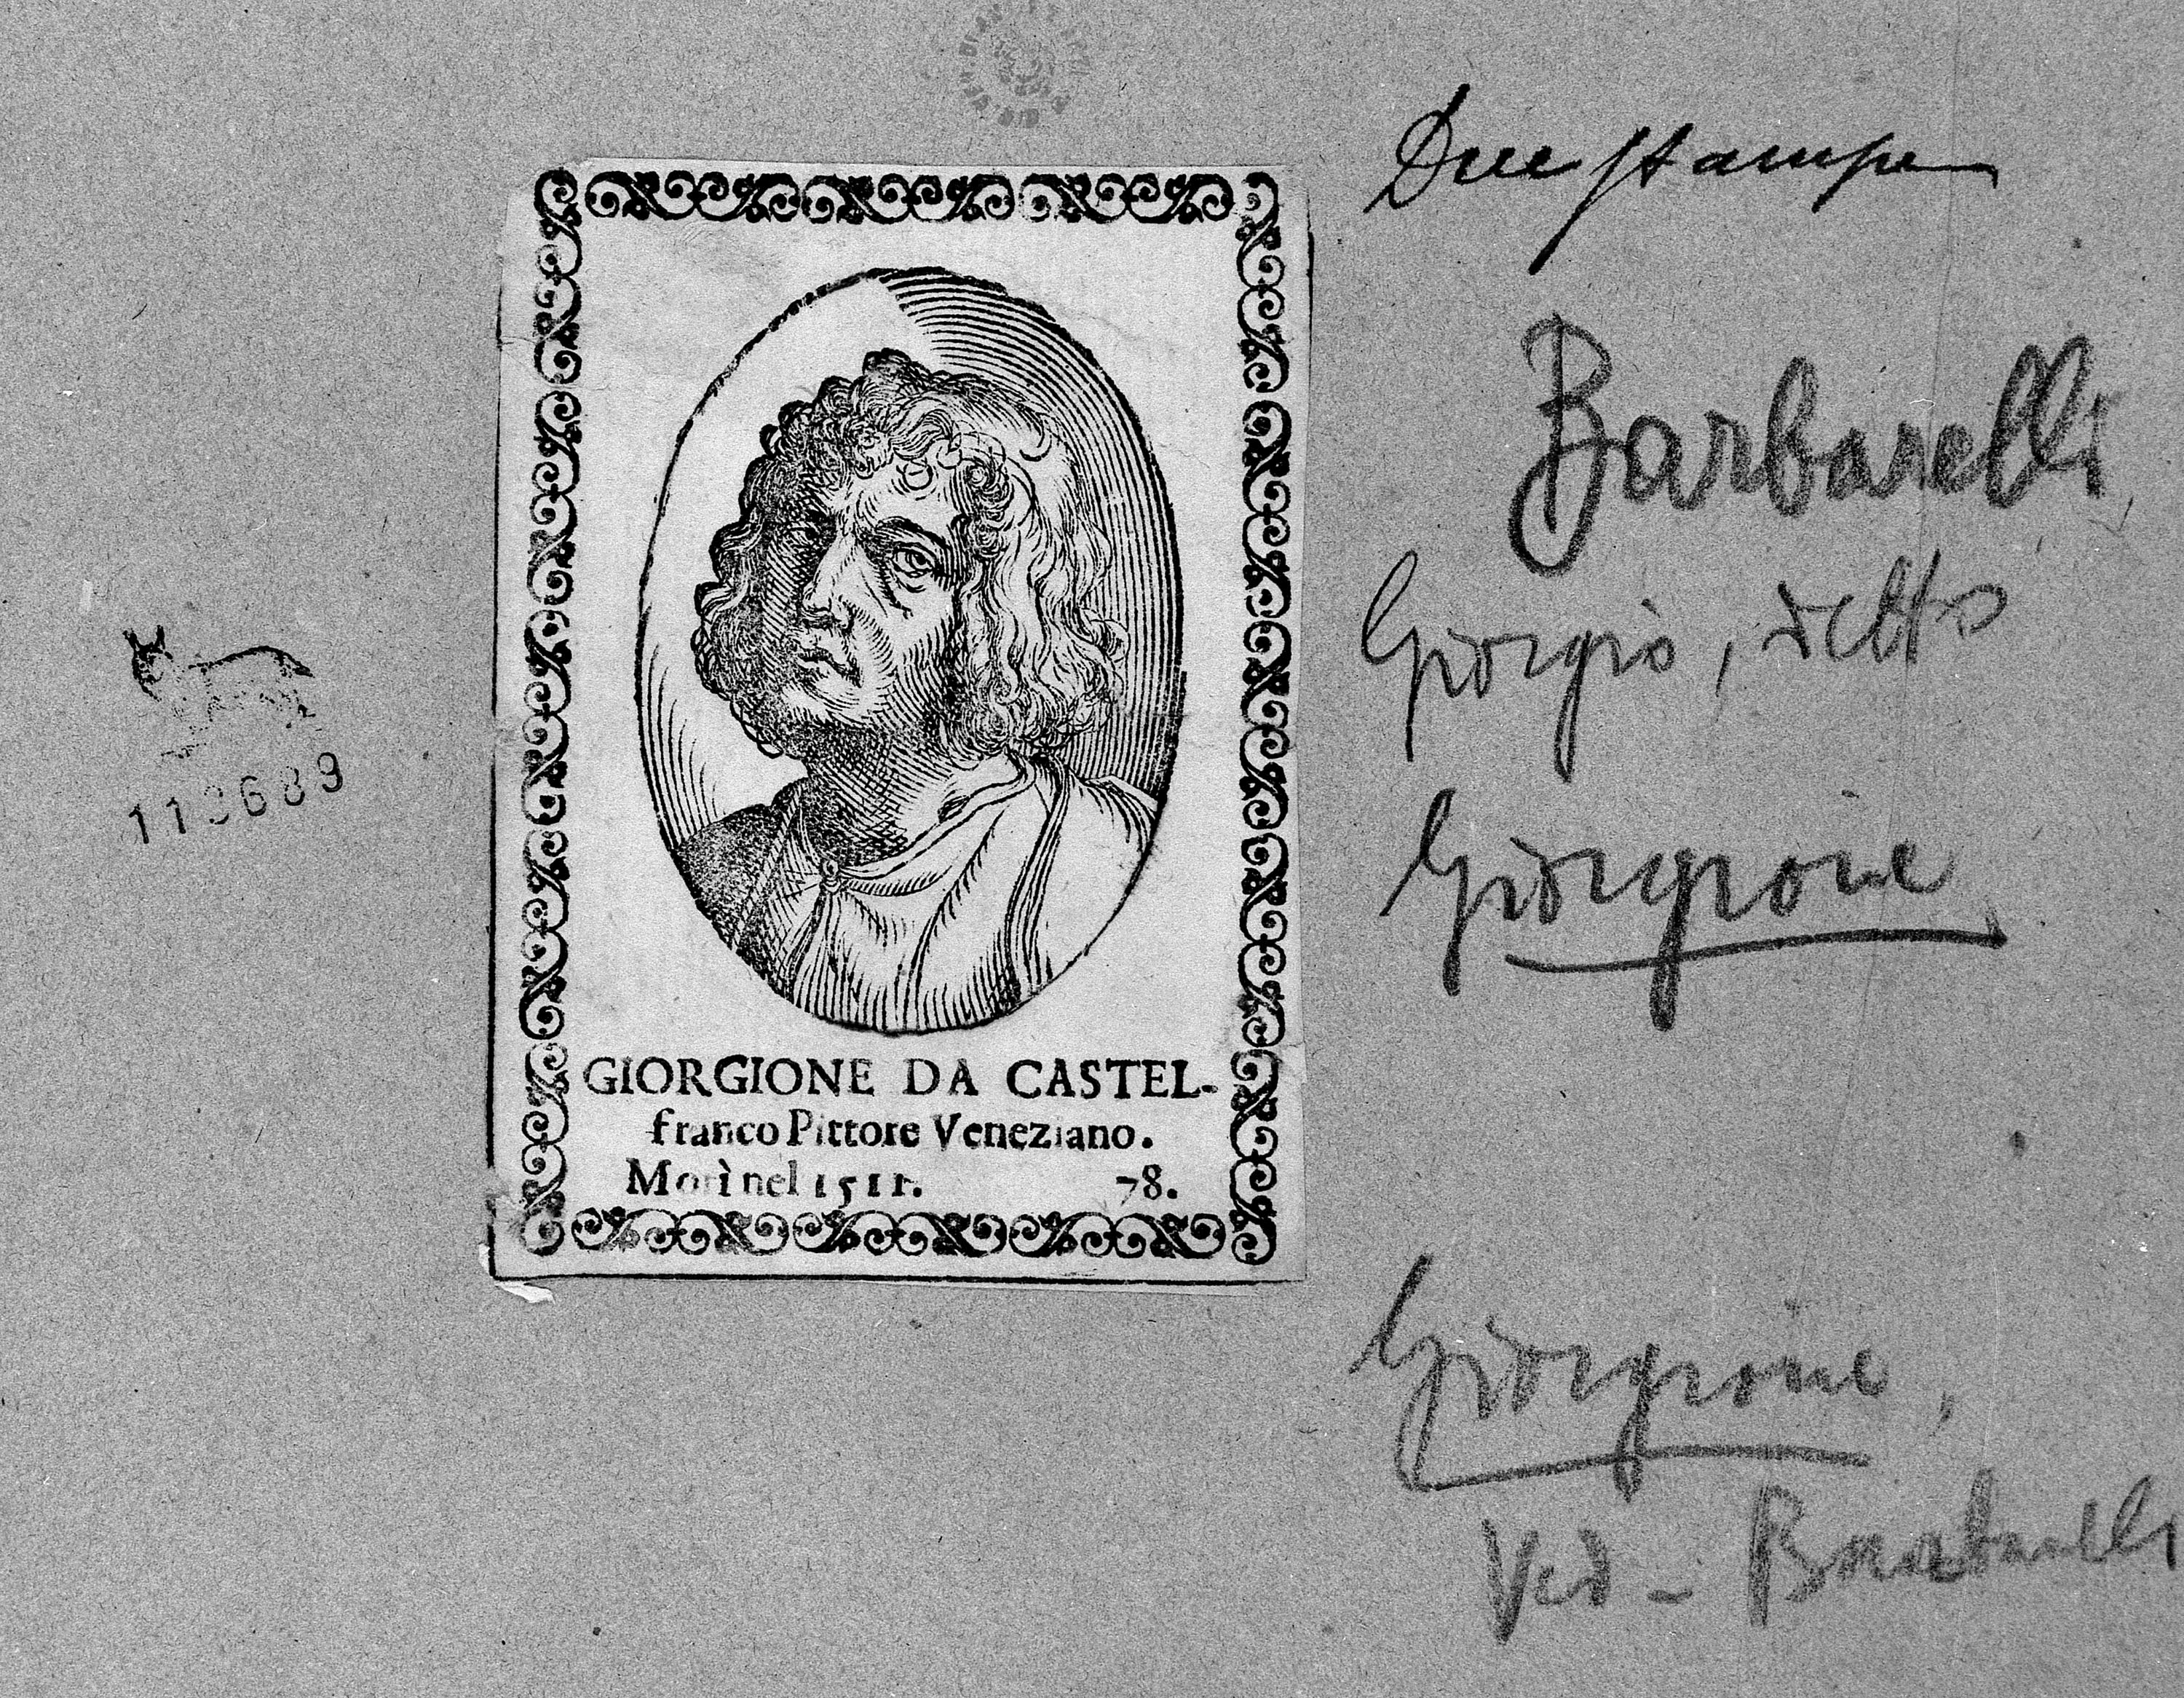 Due stampe
Barbarelli
Giorgio, detto
Giorgione
GIORGIONE DA CASTEL-
franco Pittore Veneziano.
Morì nel 1511. 78.
Giorgione,
Ved - Barbarelli